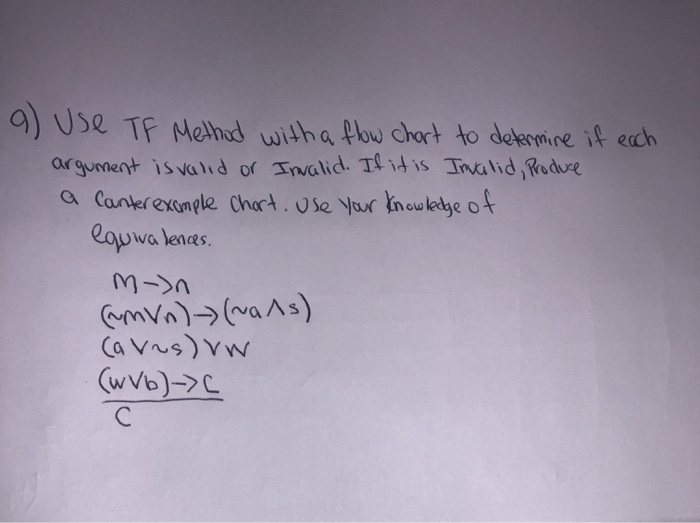 9) Use TF Method with a flow chart to determine if each
argument is valid or Invalid. If it is Invalid, Produce
a Canterexample Chart. Use Your Knowledge of
equivalences.
m->n
(~m∨n)->(~a∧s)
(a∨~s)∨w
(w∨b)->C
C